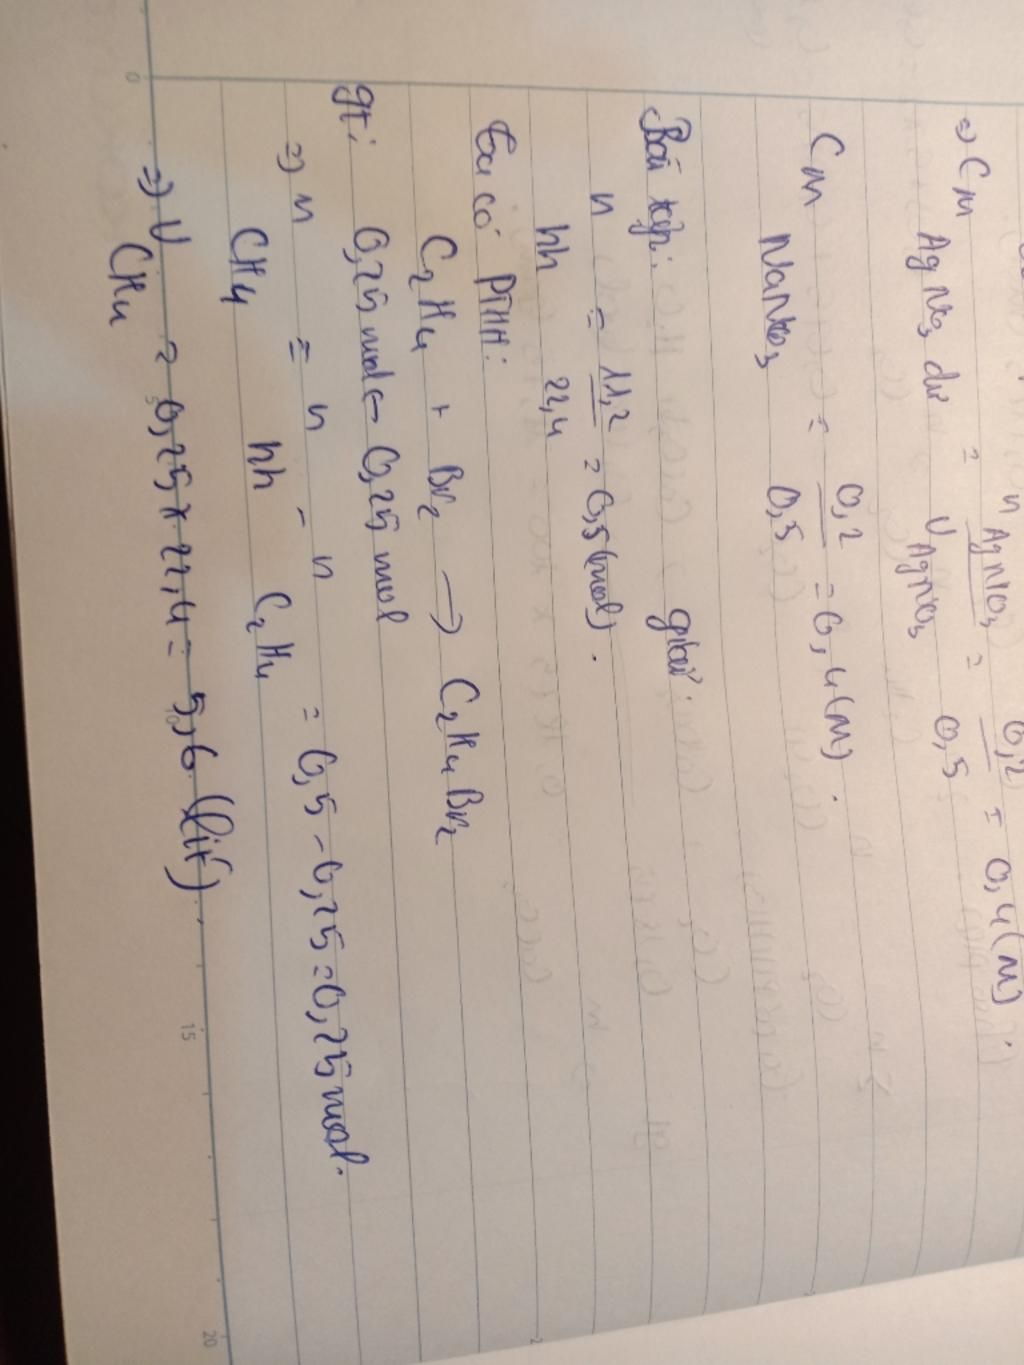 =) CM AgNO3 dư = nAgNO3 / VAgNO3 = 0,2 / 0,5 = 0,4(M).
CM NaNO3 = 0,2 / 0,5 = 0,4(M).
Bài tập: giải:
nhh = 11,2 / 22,4 = 0,5(mol).
Ta có PTHH:
C2H4 + Br2 → C2H4Br2
gt: 0,25mol ← 0,25mol
=) nCH4 = nhh - nC2H4 = 0,5 - 0,25 = 0,25mol.
=) VCH4 = 0,25 × 22,4 = 5,6 (lít).
0 5 10 15 20